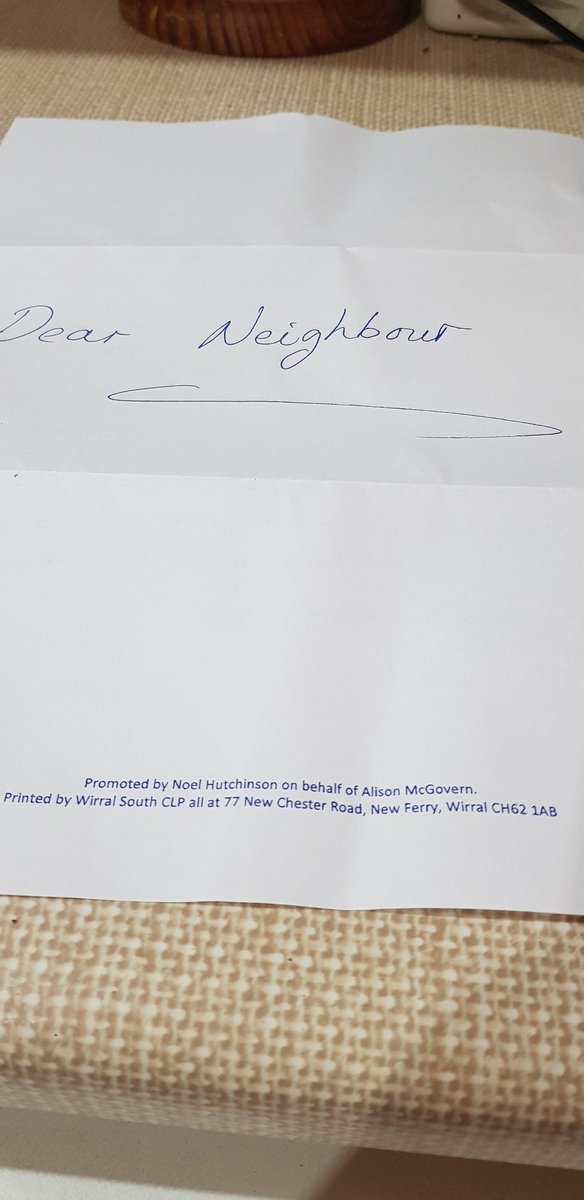 Dear Neighbour
Promoted by Noel Hutchinson on behalf of Alison McGovern.
Printed by Wirral South CLP all at 77 New Chester Road, New Ferry, Wirral CH62 1AB